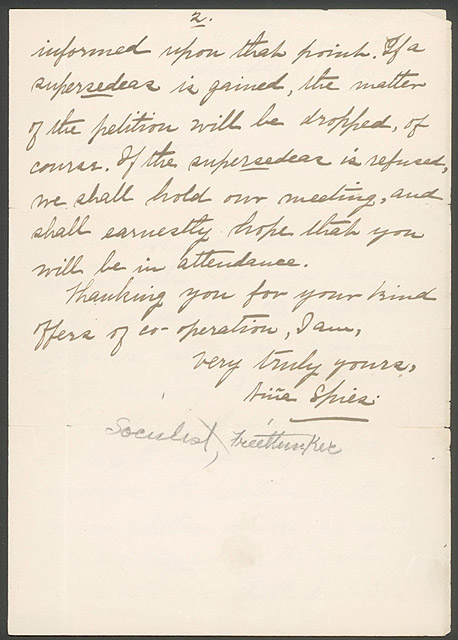 2.
informed upon that point. If a
supersedeas is gained, the matter
of the petition will be dropped, of
course. If the supersedeas is refused,
we shall hold our meeting, and
shall earnestly hope that you
will be in attendance.
Thanking you for your kind
offers of co-operation, I am,
very truly yours,
Nina Spies.
Socialist, Freethinker